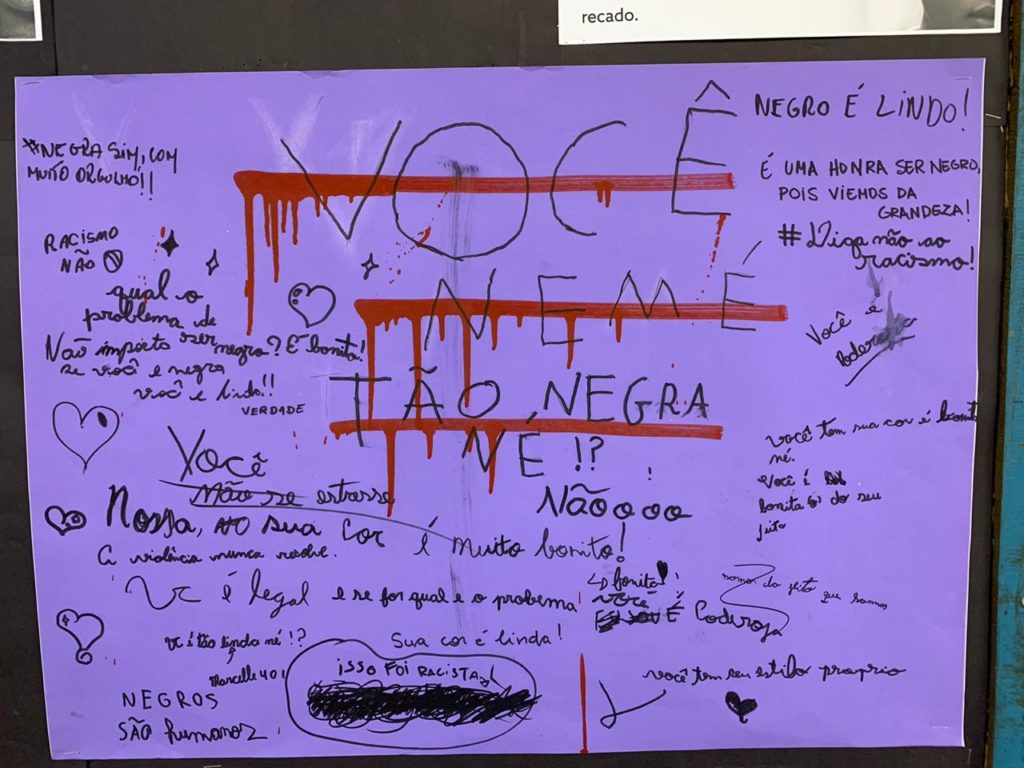 recado.
VOCÊ
NEM É
TÃO NEGRA
NÉ!?
#NEGRA SIM, COM
MUITO ORGULHO!!
RACISMO
NÃO
qual o
problema de
ser negro? É bonito!
Não importa
se você e negro
você e lindo!!
VERDADE
NEGRO É LINDO!
É UMA HONRA SER NEGRO,
POIS VIEMOS DA
GRANDEZA!
#Diga não ao
racismo!
Você é
você tem sua cor é bonit
né.
Você é
bonita (o) do seu
jeito
Você
não se estresse
Nãoooo
Nossa, sua cor é muito bonito!
A violência nunca resolve.
Vc é legal e se for qual e o probema
bonito!
você
É Poderosa
somos do jeito que somos
Vc é tão linda né!?
Marcelle 401
Sua cor é linda!
isso FOI RACISTA
você tem seu estilo proprio
NEGROS
SÃO humanos